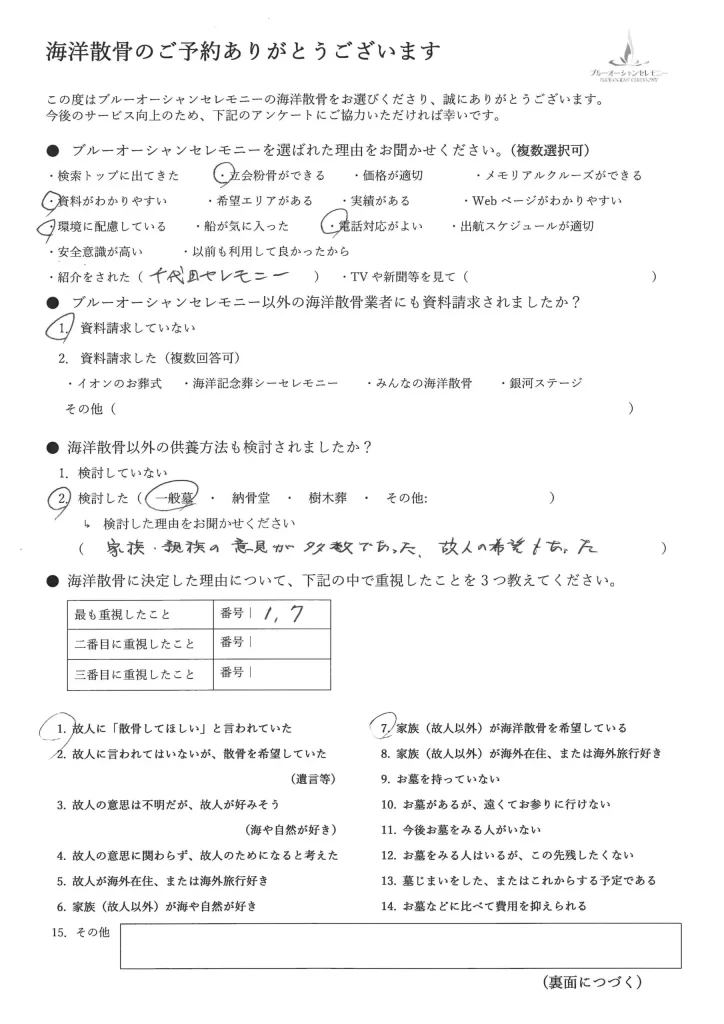 海洋散骨のご予約ありがとうございます
ブルーオーシャンセレモニー
BLUE OCEAN CEREMONY
この度はブルーオーシャンセレモニーの海洋散骨をお選びくださり、誠にありがとうございます。
今後のサービス向上のため、下記のアンケートにご協力いただければ幸いです。
● ブルーオーシャンセレモニーを選ばれた理由をお聞かせください。（複数選択可）
・検索トップに出てきた ・立会粉骨ができる ・価格が適切 ・メモリアルクルーズができる
・資料がわかりやすい ・希望エリアがある ・実績がある ・Web ページがわかりやすい
・環境に配慮している ・船が気に入った ・電話対応がよい ・出航スケジュールが適切
・安全意識が高い ・以前も利用して良かったから
・紹介をされた（ 千代田セレモニー ） ・TV や新聞等を見て（ ）
● ブルーオーシャンセレモニー以外の海洋散骨業者にも資料請求されましたか？
1. 資料請求していない
2. 資料請求した（複数回答可）
・イオンのお葬式 ・海洋記念葬シーセレモニー ・みんなの海洋散骨 ・銀河ステージ
その他（ ）
● 海洋散骨以外の供養方法も検討されましたか？
1. 検討していない
2. 検討した（ 一般墓 ・ 納骨堂 ・ 樹木葬 ・ その他: ）
↳ 検討した理由をお聞かせください
（ 家族・親族の意見が多数であった、故人の希望もあった ）
● 海洋散骨に決定した理由について、下記の中で重視したことを３つ教えてください。
最も重視したこと 番号| 1, 7
二番目に重視したこと 番号|
三番目に重視したこと 番号|
1. 故人に「散骨してほしい」と言われていた
2. 故人に言われてはいないが、散骨を希望していた
（遺言等）
3. 故人の意思は不明だが、故人が好みそう
（海や自然が好き）
4. 故人の意思に関わらず、故人のためになると考えた
5. 故人が海外在住、または海外旅行好き
6. 家族（故人以外）が海や自然が好き
7. 家族（故人以外）が海洋散骨を希望している
8. 家族（故人以外）が海外在住、または海外旅行好き
9. お墓を持っていない
10. お墓があるが、遠くてお参りに行けない
11. 今後お墓をみる人がいない
12. お墓をみる人はいるが、この先残したくない
13. 墓じまいをした、またはこれからする予定である
14. お墓などに比べて費用を抑えられる
15. その他
（裏面につづく）